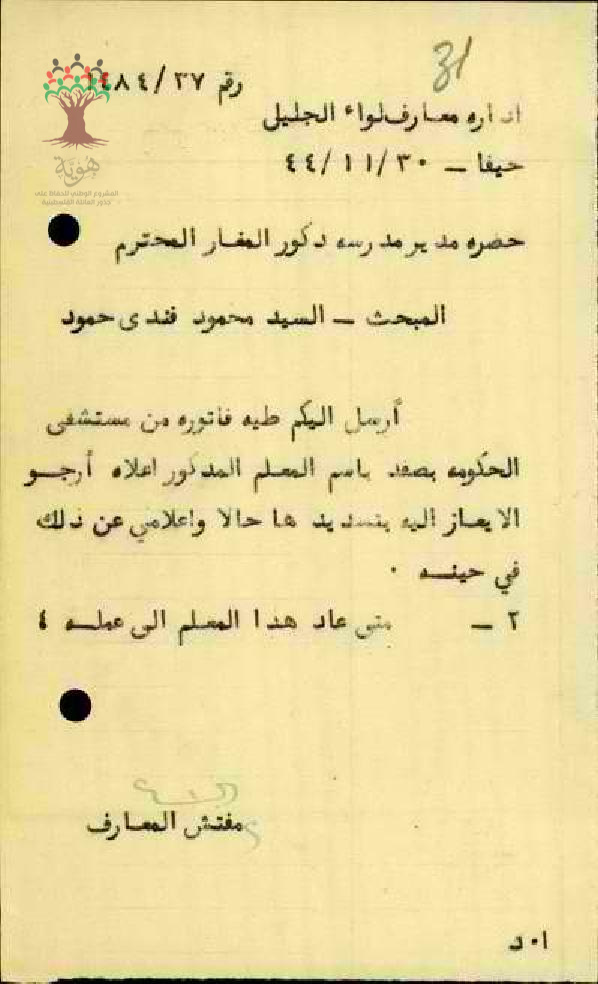 31
رقم ١٤٨٤/٣٧
اداره معارف لواء الجليل
حيفا - ٤٤/١١/٣٠
هوية
المشروع الوطني للحفاظ على
جذور العائلة الفلسطينية
حضره مدير مدرسه ذكور المغار المحترم
المبحث - السيد محمود فندى حمود
أرسل اليكم طيه فاتوره من مستشفى
الحكومه بصفد باسم المعلم المذكور اعلاه أرجو
الايعاز اليه بتسديدها حالا واعلامي عن ذلك
في حينه ٠
٢ - متى عاد هذا المعلم الى عمله ؟
مفتش المعارف
ا٠د